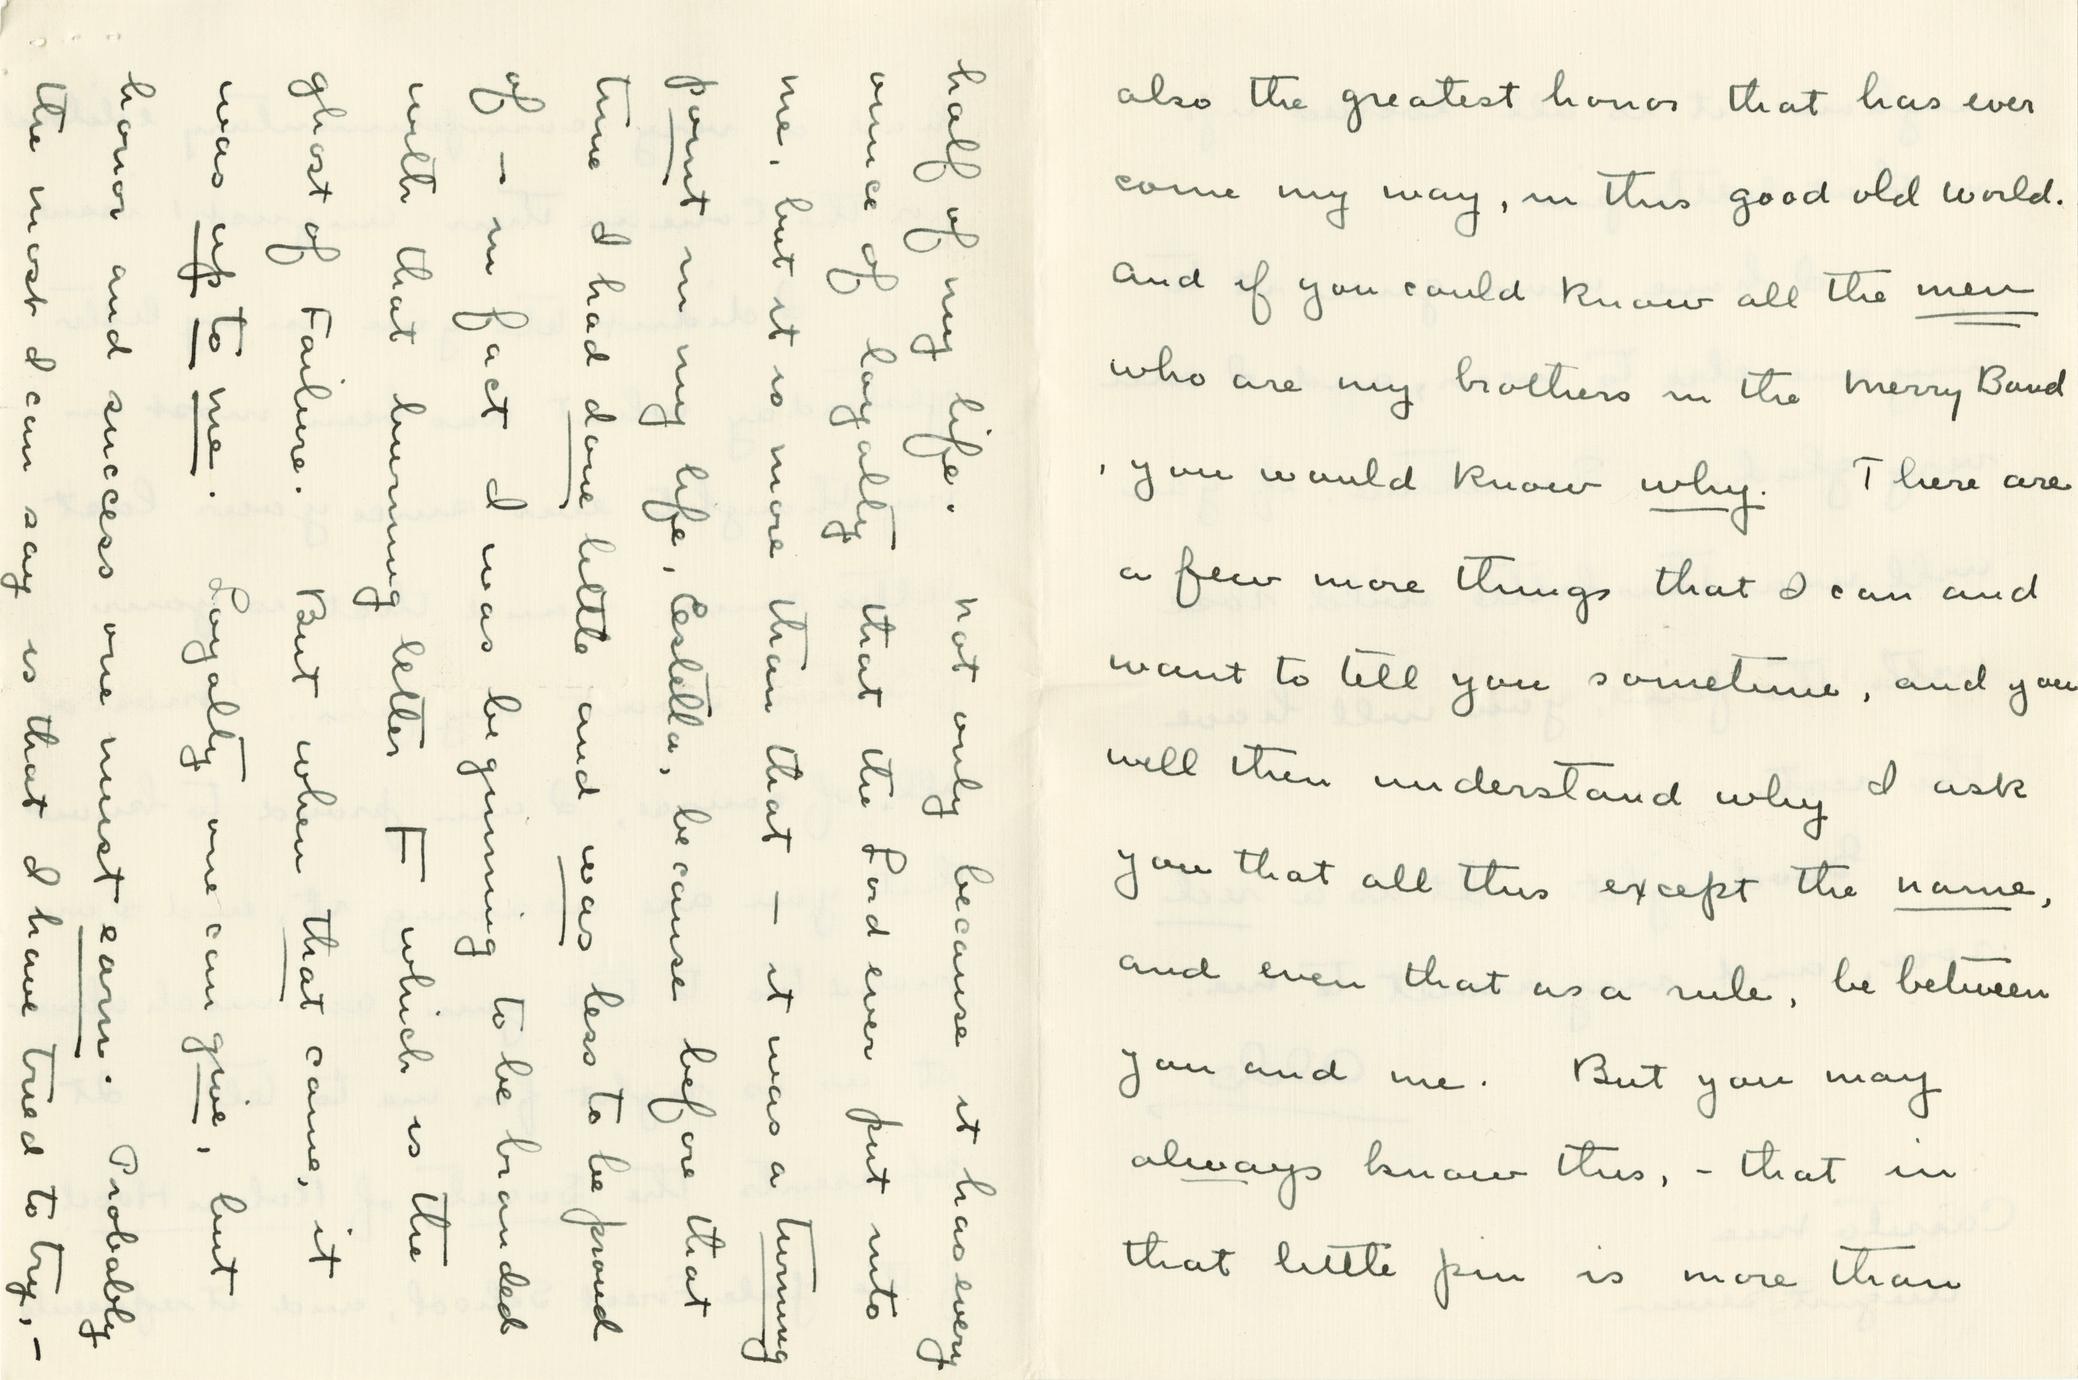 also the greatest honor that has ever
come my way, in this good old world.
And if you could know all the men
who are my brothers in the Merry Band
, you would know why. There are
a few more things that I can and
want to tell you sometime, and you
will then understand why I ask
you that all this except the name,
and even that as a rule, be between
you and me. But you may
always know this, - that in
that little pin is more than
half of my life. Not only because it has every
ounce of loyalty that the Lord ever put into
me, but it is more than that — it was a turning
point in my life, Estella, because before that
time I had done little and was less to be proud
of — in fact I was beginning to be branded
with that burning letter F which is the
ghost of Failure. But when that came, it
was up to me. Loyalty one can give, but
honor and success one must earn. Probably
the most I can say is that I have tried to try, —